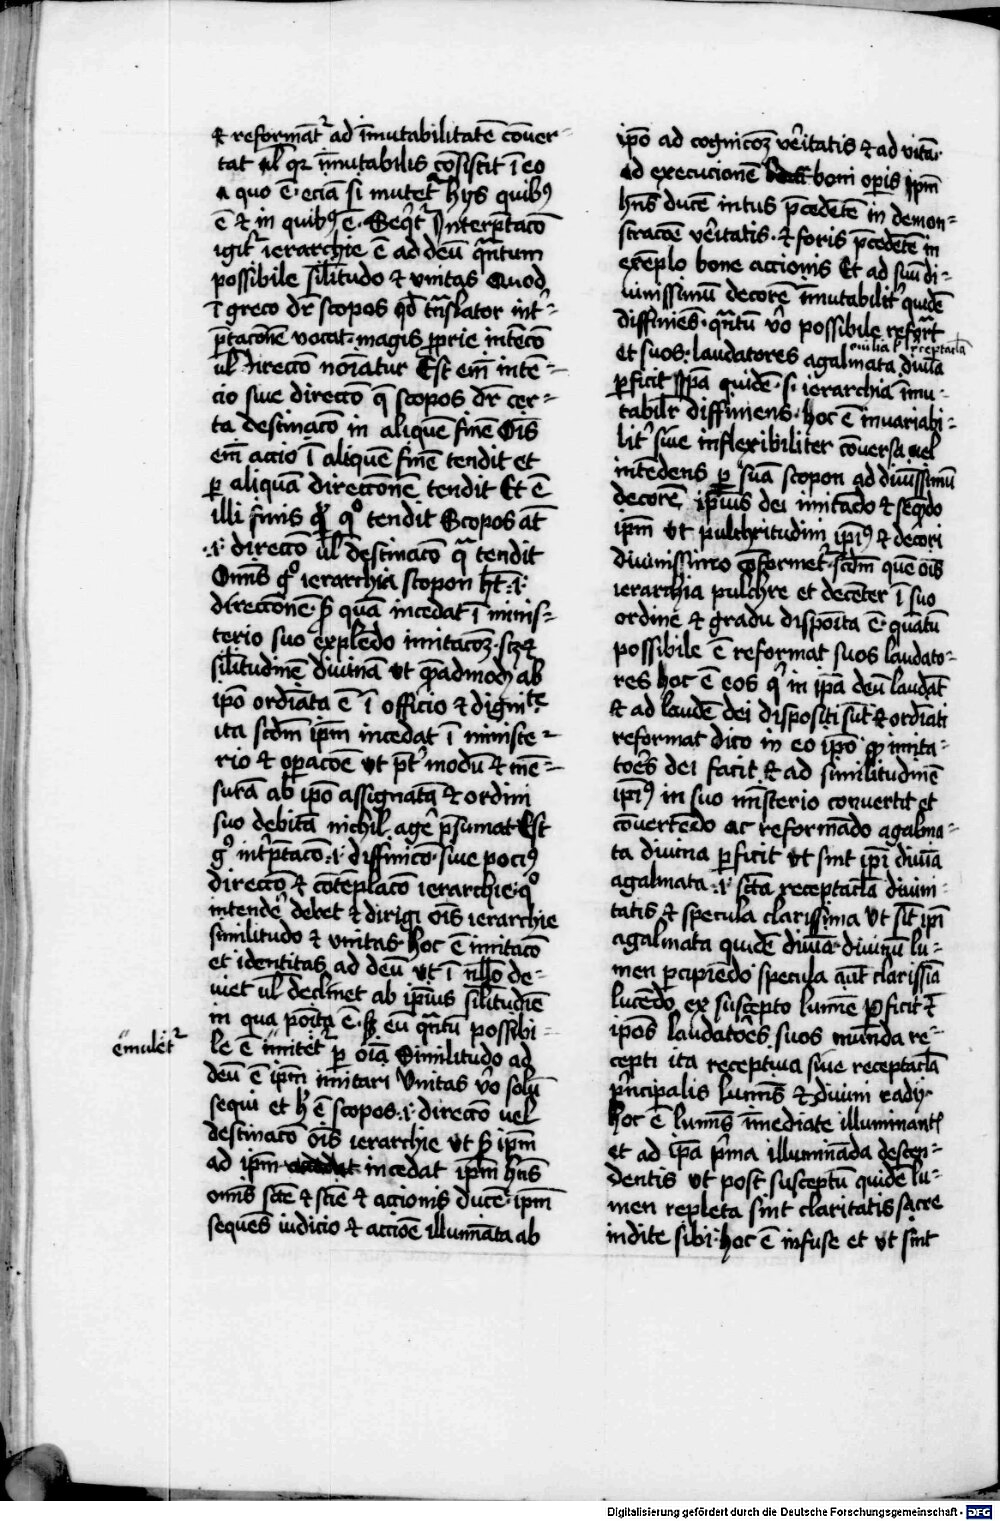 & reformat᷑ ad īmutabilitatē cōuer-
tat ul̄ qr īmutabilis cōsistit ī eo
a quo ē · eciā si mutet᷑ hys quibꝯ
ē & in quibꝯ ē · Seq̄t᷑ Interp̄tacō
igit᷑ ierarchie ē ad deū q̄ntum
possibile sil̄itudo & vnitas Quod
ī greco dr̄ scopos qd̄ trāslator int᷑-
p̄taconē vocat · magis ꝓprie intēcō
ul̄ direccō noīatur Est em̄ intē-
cio siue direccō q̄ scopos dr̄ cer-
ta destinacō in aliquē finē Oīs
em̄ accio ī aliquē finē tendit et
ꝑ aliquā direccōnē tendit Et ē
illi finis ꝙ quo tendit Scopos at̄
·i· direccō ul̄ destinacō q̄ tendit
Omīs gͦ ierarchia scopon ht̄ ·i·
direccōnē · ꝑ quā incedat ī minis-
terio suo explēdo imitacōꝫ · scꝫ &
sil̄itudinē diuinā vt q̄admodū ab
ipō ordīata ē ī officio & dignite
ita scdm̄ ipm̄ incedat ī ministe-
rio & oꝑacōe vt p̄t᷑ modū & mē-
surā ab ipō assignatā & ordini
suo debitā nichil agē p̄sumat Est
gͦ int᷑p̄tacō ·i· diffinicō · siue pociꝯ
direccō & cōtēplacō ierarchie · qͦ
intendē debet & dirigi oīs ierarchie
similitudo & vnitas · hoc ē imitacō
et identitas ad deū vt ī nllō de-
uiet ul̄ declinet ab ipīus sil̄itudīe
in qua pōita ē · sꝫ eū q̄ntū possibi-
le ē imitet᷑ ꝑ oīa Similitudo ad
ēmulet᷑
deū ē ipm̄ imitari Vnitas v̄o solū
sequi et h̄ ē scopos ·i· direccō uel
destinacō oīs ierarchie vt ꝑ ipm̄
ad ipm̄ incedat ipm̄ hn̄s
omīs scē & sciē & accionis ducē · ipm̄
sequēs iudicio & accōe illumīata ab
ipō ad cognicōꝫ v̄itatis & ad vitā ·
ad execucionē boni oꝑis ipm̄
hn̄s ducē intus p̄cedētē in demon-
stracōe v̄itatis · & foris p̄cedētē in
exēplo bone accionis Et ad suū di-
uinissimū decorē īmutabilit᷑ quidē
diffiniēs · q̄ntū v̄o possibile reformāt
et suos · laudatores agalmata diuīa
receptacl̄a
ꝑficit Ipā quidē · si ierarchia īmu-
tabilr̄ diffiniens · hoc ē inuariabi-
lit᷑ siue inflexibiliter cōuersa uel
intēdens ꝑ suā scopon ad diuīssimū
decorē ipīus dei imitādo & seq̄ndo
ipm̄ vt pulchritudini ipīꝯ & decori
diuinissimo cōformet᷑ · scdm̄ quē oīs
ierarchia pulchre et decēter ī suo
ordine & gradu dispōita ē · quātū
possibile ē reformat suos laudato-
res hoc ē eos qͥ in ipā deū laudāt
& ad laudē dei dispositi sūt & ordīati
reformat dico in eo ipō ꝙ imita-
tōēs dei facit & ad similitudinē
ipīꝯ in suo mīsterio conuertit et
cōuertēdo ac reformādo agalma-
ta diuina ꝑficit vt sint ipī diuīa
agalmata ·i· scā receptacl̄a diuini-
tatis & specula clarissima vt sīt ipī
agalmata quidē diuīa · diuinū lu-
men ꝑcipiēdo specula aut̄ clarissīa
lucēdo ex suscepto lumīe ꝑficit &
ipōs laudatōēs suos mūnda re-
cepti ita receptiua siue receptacl̄a
p̄ncipalis lumīs & diuini radij
hoc ē lumīs īmediate illuminantꝭ
et ad ipā p̄ma illumināda descen-
dentis vt post susceptū quidē lu-
men repleta sint claritatis sacre
indite sibi · hoc ē infuse et vt sint
Digitalisierung gefördert durch die Deutsche Forschungsgemeinschaft - DFG